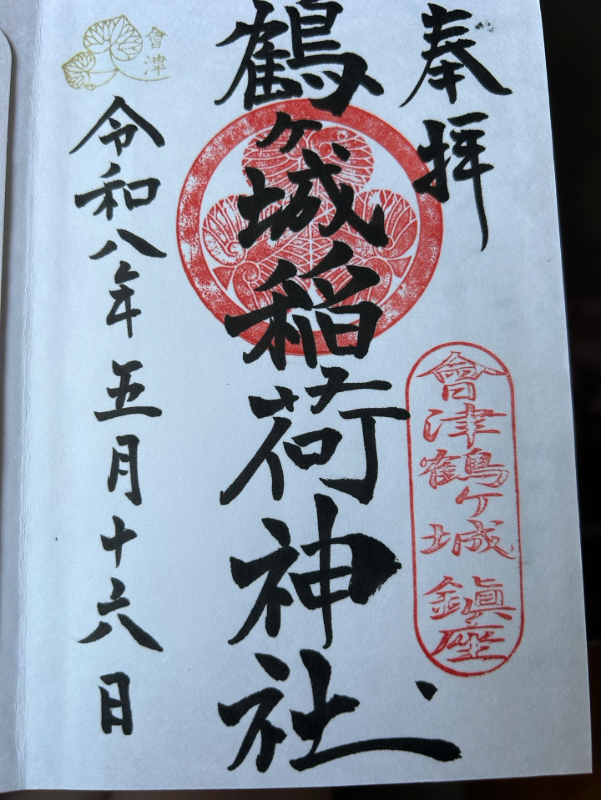 奉拝
會津鶴ヶ城 鎮座
鶴ヶ城稲荷神社
會津
令和八年五月十六日